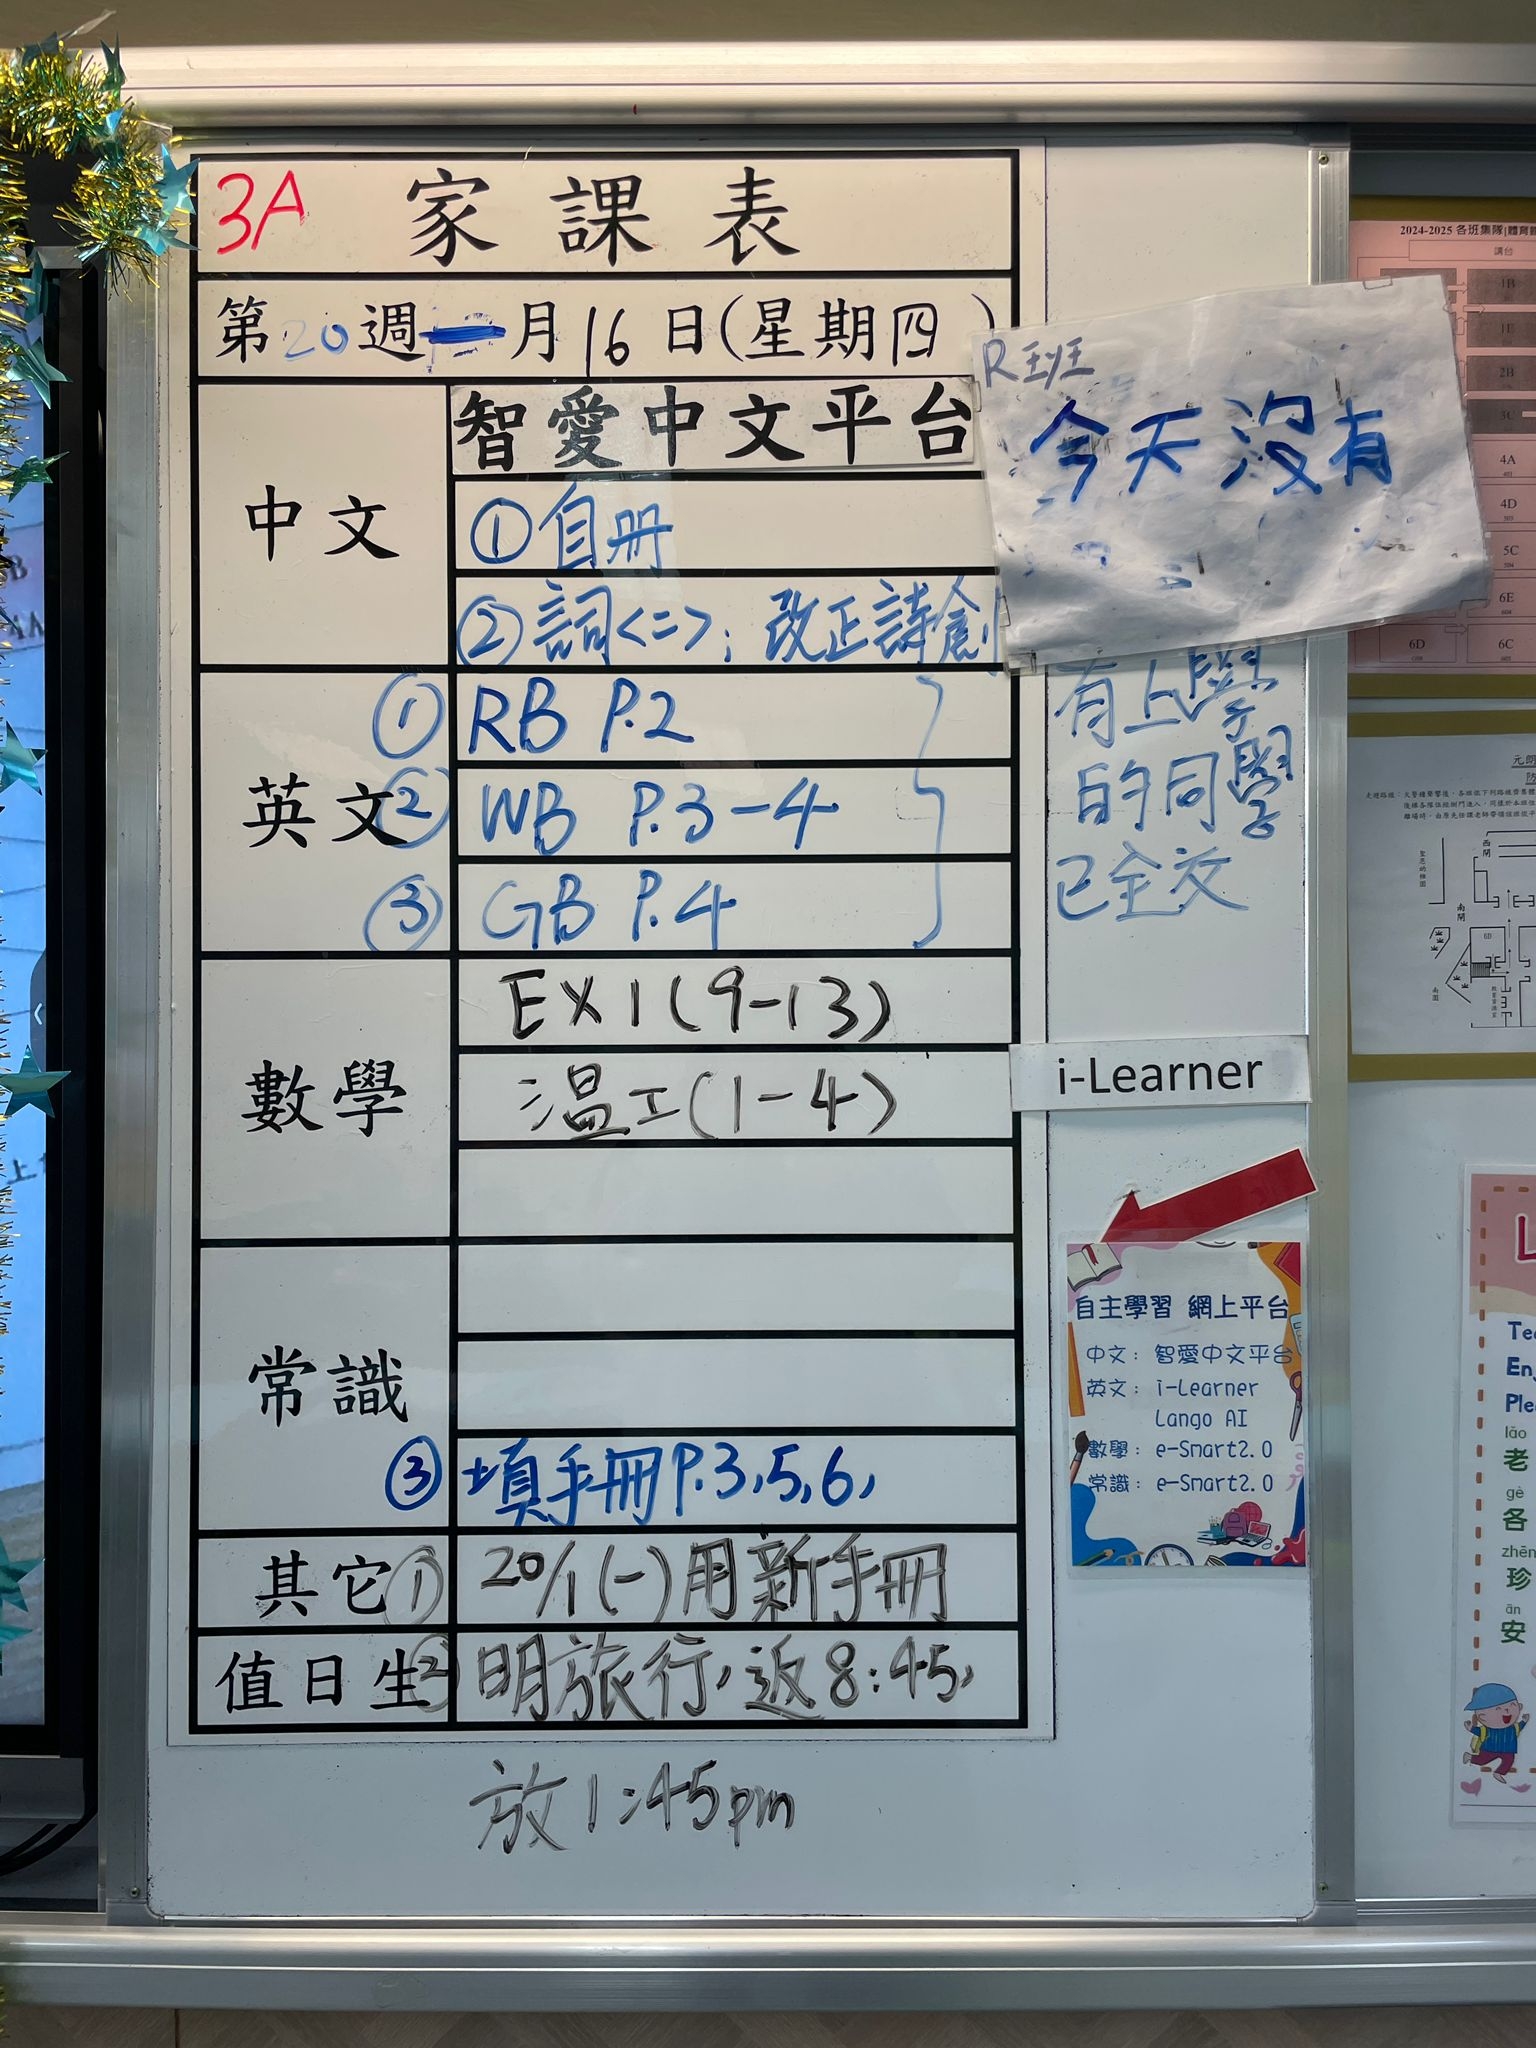 3A 家課表
第20週 一月16日(星期四)
中文
智愛中文平台
①自册
②詞<二>;改正詩創
R班
今天没有
英文
①RB P.2
②WB P.3-4
③GB P.4
有上學
的同學
已全交
數學
EX1(9-13)
温工(1-4)
i-Learner
常識
③填手冊P.3,5,6,
其它
①20/1(一)用新手冊
值日生
②明旅行,返8:45,
放1:45pm
自主學習 網上平台
中文：智愛中文平台
英文：i-Learner
Lango AI
數學：e-Smart2.0
常識：e-Smart2.0
2024-2025 各班集隊|體育
講台
1B
1E
2B
3C
4A
4D
5C
6E
6D
6C
元朗
防
西閘
南閘
6D
南園
Tea
En
Ple
lǎo
老
gè
各
zhēn
珍
ān
安